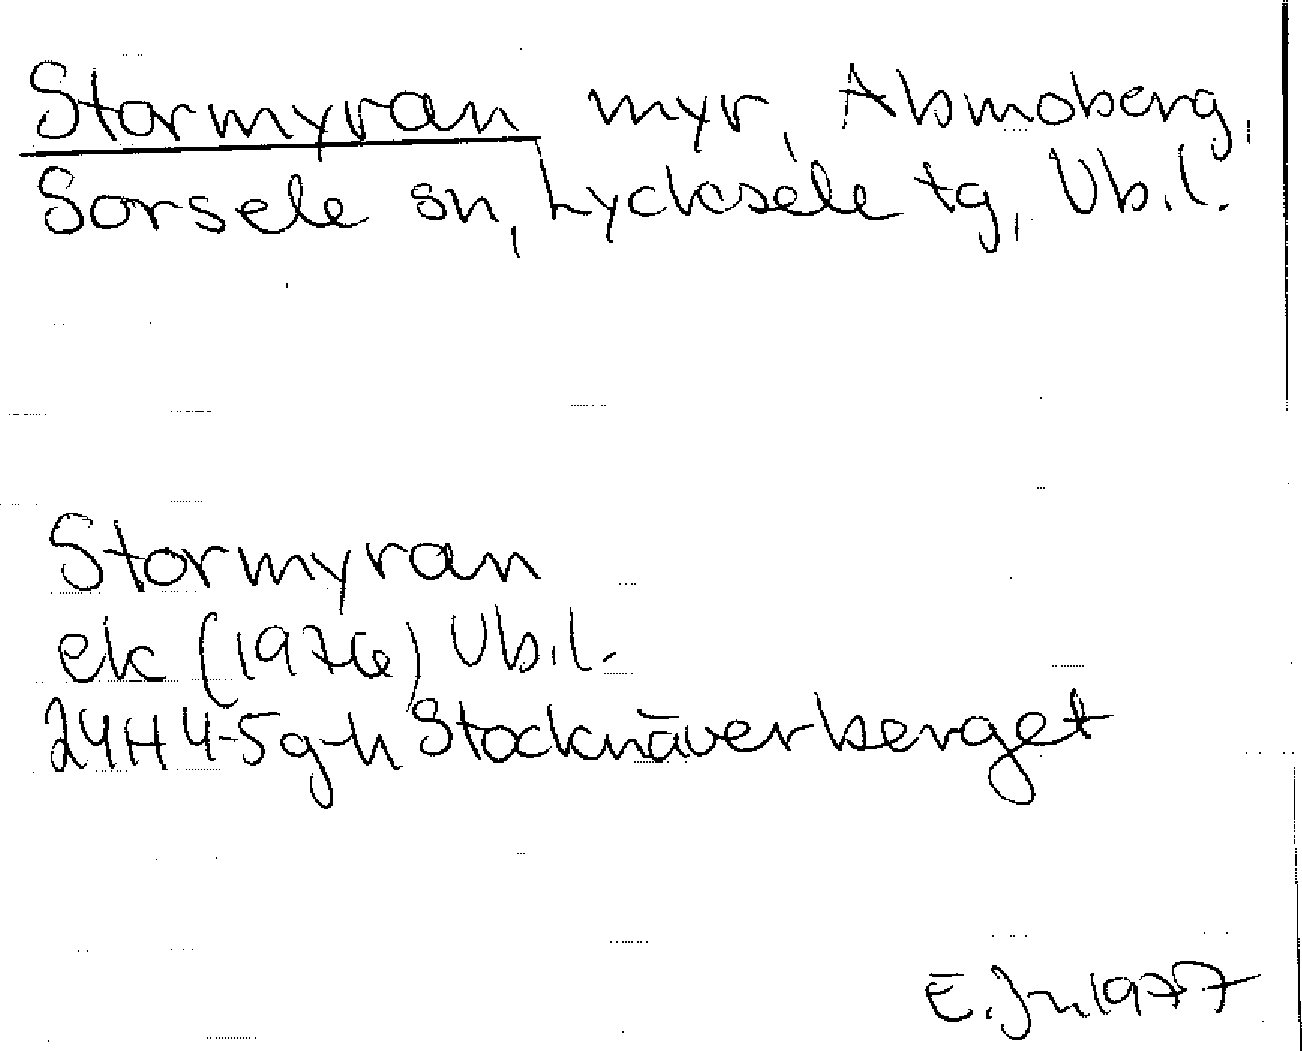 Stormyran myr, Abmoberg,
Sorsele sn, Lycksele tg, Vb.l.
Stormyran
ek (1976) Vb.l.
24H 4-5 g-h Stocknäverberget
E. Jn. 1977